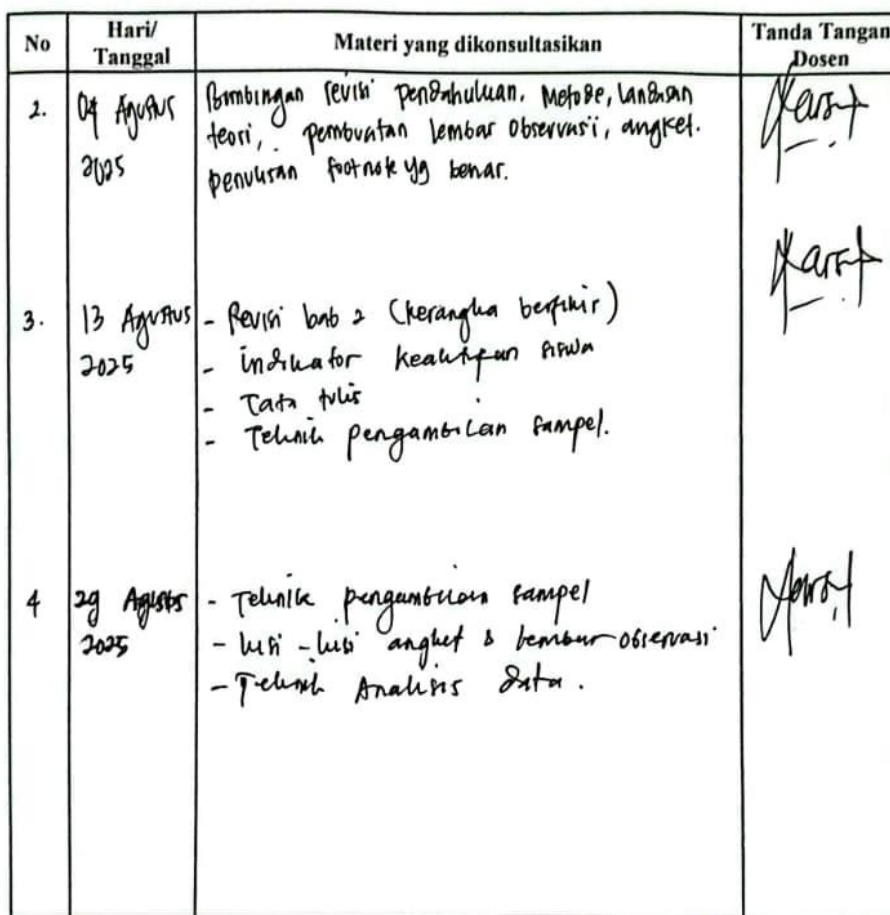 No
Hari/
Tanggal
Materi yang dikonsultasikan
Tanda Tangan
Dosen
2.
04 Agustus
2025
Bimbingan revisi pendahuluan, Metode, Landasan
teori, pembuatan lembar observasi, angket.
penulisan footnote yg benar.
3.
13 Agustus
2025
- Revisi bab 2 (kerangka berfikir)
- indikator keaktifan siswa
- Tata tulis
- Teknik pengambilan sampel.
4
29 Agustus
2025
- Teknik pengambilan sampel
- kisi-kisi angket & lembar observasi
- Teknik Analisis data.